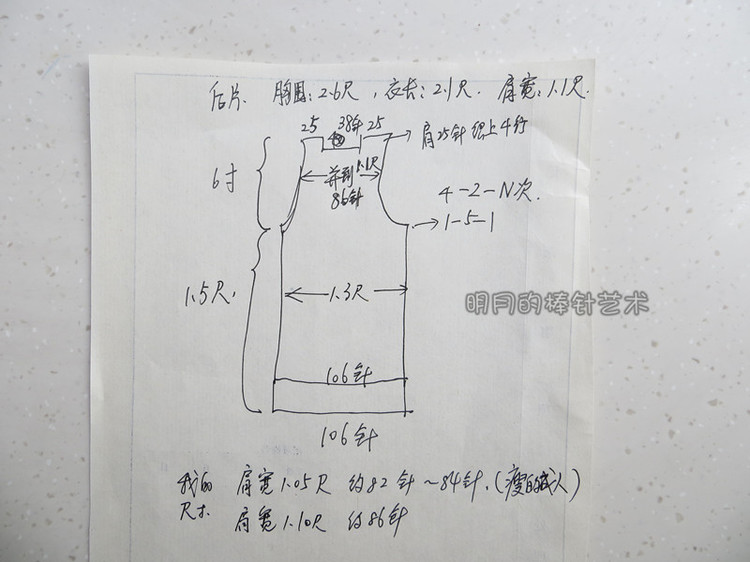 后片. 胸围:2.6尺, 衣长:2.1尺. 肩宽:1.1尺.
25 38针 25
肩25针织上4行
6寸
并到1.1尺
86针
4-2-N次.
1-5-1
1.5尺.
1.3尺
明月的棒针艺术
106针
106针
我的尺寸 肩宽1.05尺 约82针~84针.(瘦的成人)
肩宽1.10尺 约86针